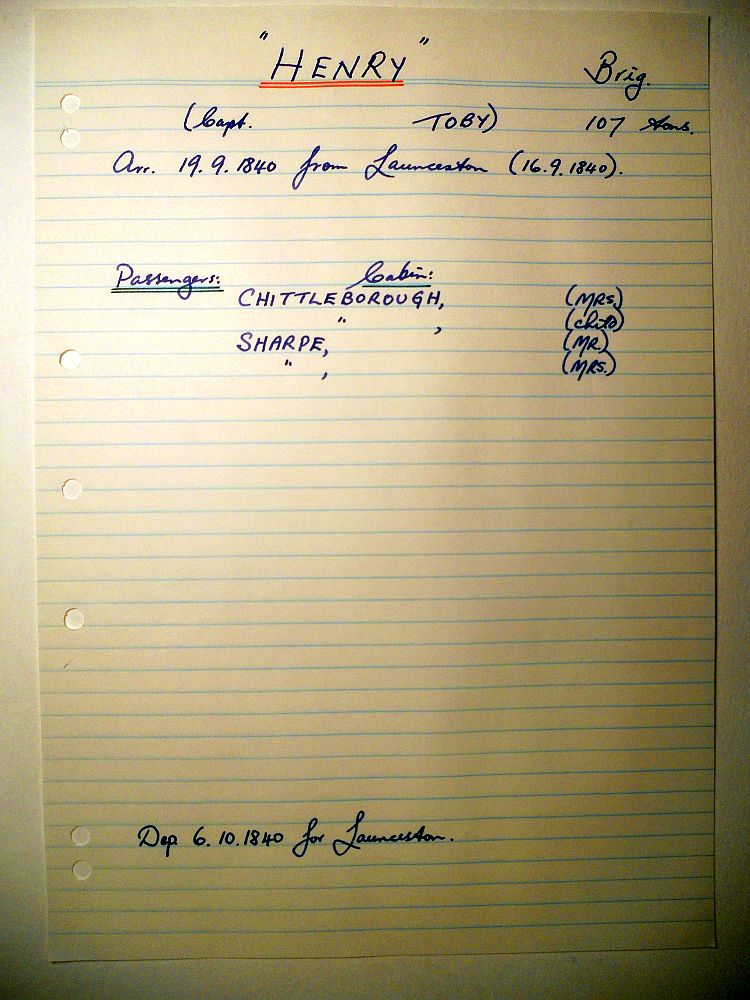 "HENRY" Brig.
(Capt. TOBY) 107 tons.
Arr. 19.9.1840 from Launceston (16.9.1840).
Passengers: Cabin:
CHITTLEBOROUGH, (MRS.)
" , (child)
SHARPE, (MR.)
" , (MRS.)
Dep 6.10.1840 for Launceston.